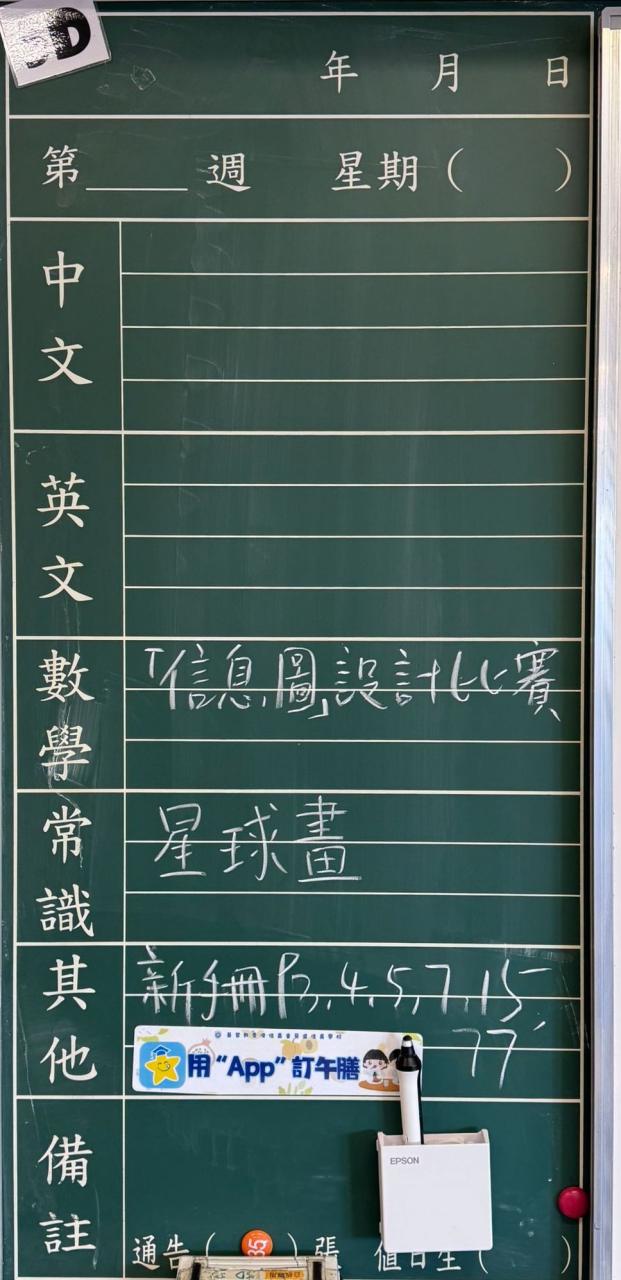 D
年 月 日
第____週 星期( )
中文
英文
數學
「信息圖」設計比賽
常識
星球畫
其他
新手冊 P3, 4, 5, 7, 15,
77
用“App”訂午膳
備註
EPSON
通告( ) 張 值日生( )